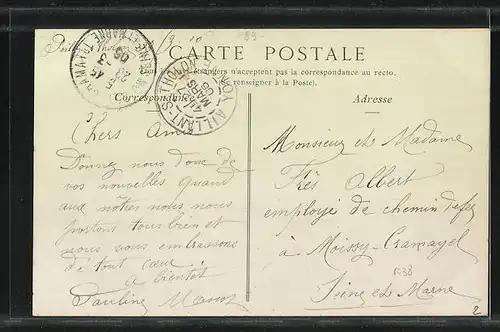 CARTE POSTALE
étrangers n'acceptent pas la correspondance au recto.
(Se renseigner à la Poste).
Correspondance
Adresse
AILLANT-S-THOLON
MARS
Chers Amis
Donnez nous donc de
vos nouvelles quand
aux nôtres nous nous
portons tous bien et
nous vous embrassons
de tout cœur
à bientôt
Pauline
Monsieur et Madame
Très Albert
employé de chemin de fer
à Moissy-Cramayel
Seine et Marne
2